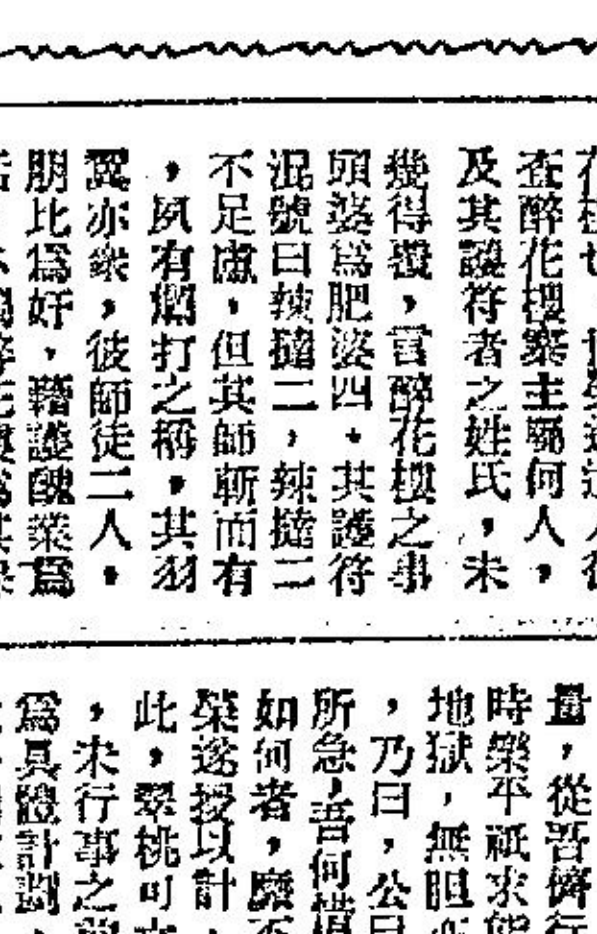 查醉花樓案主屬何人，
及其護符者之姓氏，未
幾得覆，言醉花樓之事
頭婆為肥婆四，其護符
混號曰辣撻二，辣撻二
不足慮，但其師斬而有
，夙有爛打之稱，其羽
翼亦衆，彼師徒二人，
朋比為奸，藉護醜業為
量，從吾儕行
時樂平祇求能
地獄，無眼
，乃曰，公
所急，吾何
如何者，靡不
榮遂授以計，
此，翠桃可
，未行事之前
為具體計劃，